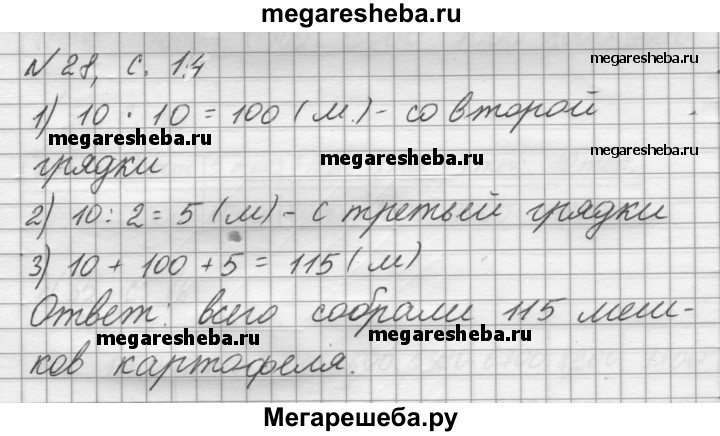 megaresheba.ru
N 28, с. 14
megaresheba.ru
1) 10 · 10 = 100 (м.) - со второй
megaresheba.ru
грядки
megaresheba.ru
megaresheba.ru
2) 10 : 2 = 5 (м) - с третьей грядки
3) 10 + 100 + 5 = 115 (м)
Ответ: всего собрали 115 меш-
megaresheba.ru
megaresheba.ru
ков картофеля.
Мегарешеба.ру